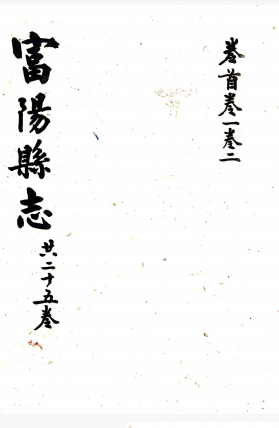 卷首卷一卷二
富陽縣志
共二十五卷